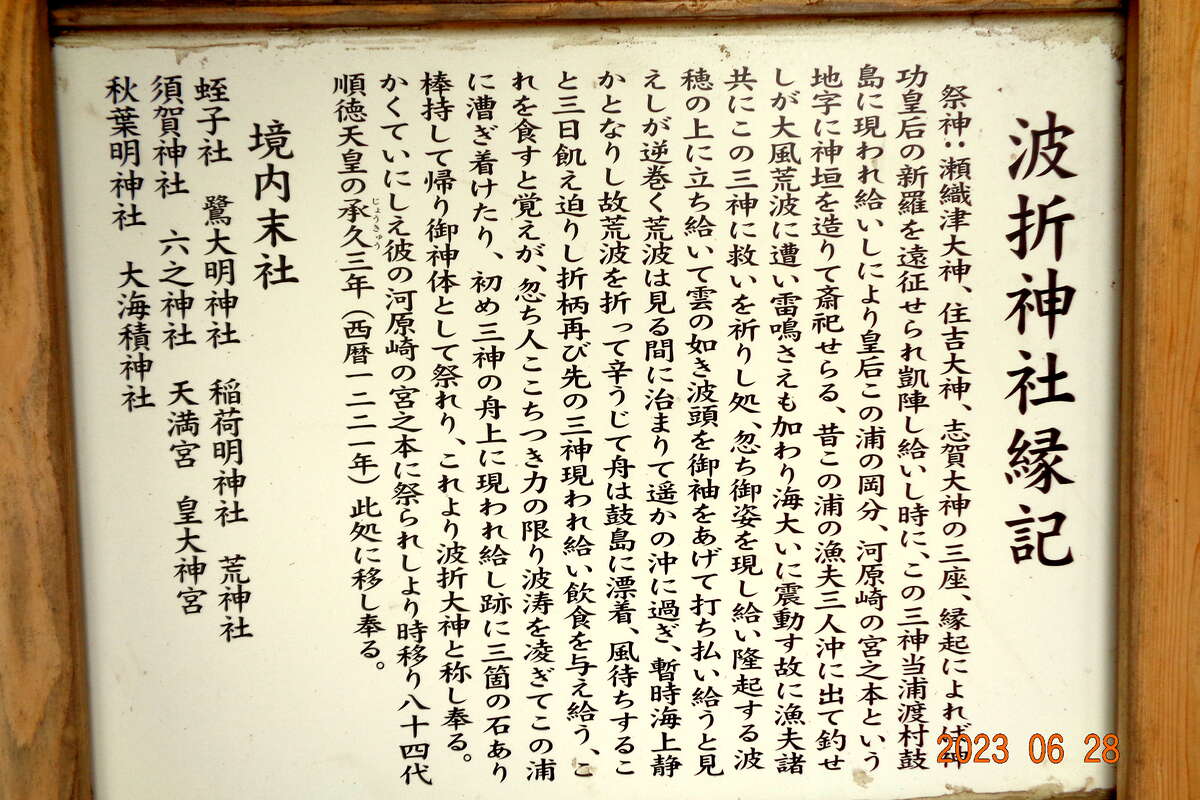 波折神社縁記
祭神：瀬織津大神、住吉大神、志賀大神の三座、縁起によれば神
功皇后の新羅を遠征せられ凱陣し給いし時に、この三神当浦渡村鼓
島に現われ給いしにより皇后この浦の岡分、河原崎の宮之本という
地字に神垣を造りて斎祀せらる、昔この浦の漁夫三人沖に出て釣せ
しが大風荒波に遭い雷鳴さえも加わり海大いに震動す故に漁夫諸
共にこの三神に救いを祈りし処、忽ち御姿を現し給い隆起する波
穂の上に立ち給いて雲の如き波頭を御袖をあげて打ち払い給うと見
えしが逆巻く荒波は見る間に治まりて遥かの沖に過ぎ、暫時海上静
かとなりし故荒波を折って辛うじて舟は鼓島に漂着、風待ちするこ
と三日飢え迫りし折柄再び先の三神現われ給い飲食を与え給う、こ
れを食すと覚えが、忽ち人ここちつき力の限り波涛を凌ぎてこの浦
に漕ぎ着けたり、初め三神の舟上に現われ給し跡に三箇の石あり
棒持して帰り御神体として祭れり、これより波折大神と称し奉る。
かくていにしえ彼の河原崎の宮之本に祭られしより時移り八十四代
順徳天皇の承久三年（西暦一二二一年）此処に移し奉る。
じょうきゅう
境内末社
蛭子社 鷺大明神社 稲荷明神社 荒神社
須賀神社 六之神社 天満宮 皇大神宮
秋葉明神社 大海積神社
2023 06 28